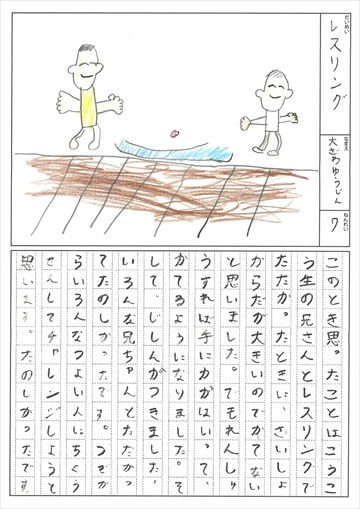 だいめい
レスリング
なまえ
大ざわゆうじん
ねんだい
7
このとき思ったことはこうこ
う生の兄さんとレスリングで
たたかったときに、さいしょ
からだが大きいのでかてない
と思いました。でもれんしゅ
うすれば手に力がはいって、
かてるようになりました。そ
して、じしんがつきました。
いろんな兄ちゃんとたたかっ
てたのしかったです。つぎか
らいろんなつよい人にちょう
せんしてチャレンジしようと
思います。たのしかったです。